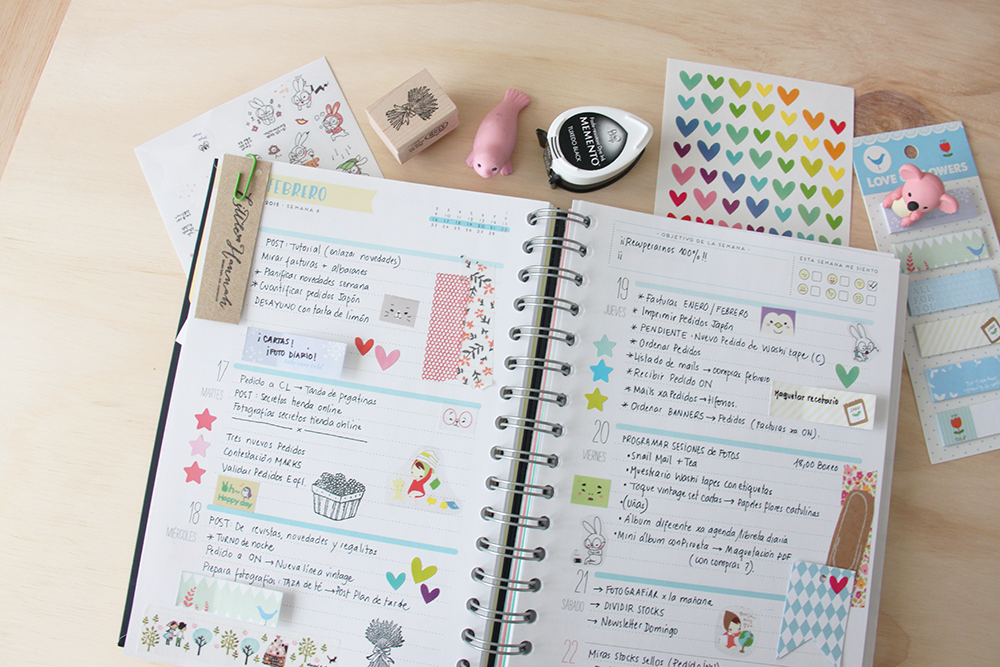 FEBRERO
2015 - SEMANA 8
POST: Tutorial (enlazar novedades)
Mirar facturas + albaranes
* Planificar novedades semana
* Cuantificar pedidos Japón
DESAYUNO con tarta de limón
¡CARTAS!
¡FOTO DIARIO!
17
MARTES
Pedido a CL → Tanda de pegatinas
POST: secretos tienda online
Fotografías secretos tienda online
Tres nuevos Pedidos
Contestación MARKS
Validar Pedidos
Oh-
Happy day
18
MIÉRCOLES
POST: De revistas, novedades y regalitos
* TURNO de noche
Pedido a ON → Nueva línea vintage
Prepara fotografías: TAZA de té → Post Plan de tarde
MEMENTO
TUXEDO BLACK
LOVE FLOWERS
- OBJETIVO DE LA SEMANA -
¡¡Recuperarnos 100%!!
ESTA SEMANA ME SIENTO
19
JUEVES
* Facturas ENERO / FEBRERO
* Imprimir Pedidos Japón
* PENDIENTE: Nuevo Pedido de Washi tape (C)
* Ordenar Pedidos
* Listado de mails → compras febrero
* Recibir Pedido ON
* Mails xa Pedidos → tifones.
* Ordenar BANNERS → Pedidos (facturas xa ON).
Maquetar recetario
20
VIERNES
PROGRAMAR SESIONES DE FOTOS
18,00 Boxeo
• Snail Mail + Tea
• Muestrario Washi tapes con etiquetas
• Toque vintage set cartas → Papeles flores cartulinas
(Uñas)
• Álbum diferente xa agenda/libreta diaria
• Mini álbum con Piruleta → Maquetación PDF
(con compras?).
21
SÁBADO
→ FOTOGRAFIAR x la mañana
→ DIVIDIR STOCKS
→ Newsletter Domingo
22
Miras stocks sellos